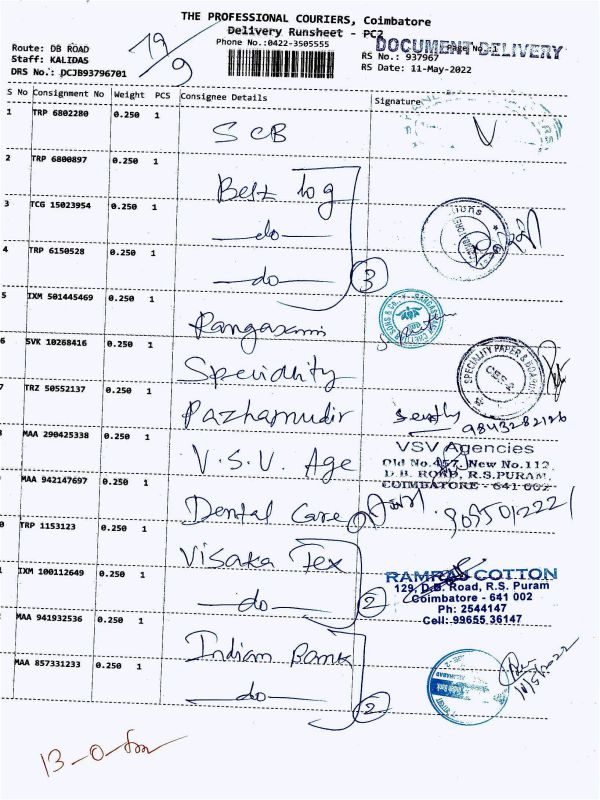 THE PROFESSIONAL COURIERS, Coimbatore
Delivery Runsheet - PC2
Phone No.:0422-3505555
DOCUMENT DELIVERY
Page No.:1
Route: DB ROAD
Staff: KALIDAS
DRS No.: DCJB93796701
19/9
RS No.: 937967
RS Date: 11-May-2022
S No Consignment No Weight PCS Consignee Details Signature
1 TRP 6802280 0.250 1 SCB
2 TRP 6800897 0.250 1 Best log
3 TCG 15023954 0.250 1 —do—
4 TRP 6150528 0.250 1 —do— 3
5 IXM 501445469 0.250 1 Rangasami
6 SVK 10268416 0.250 1 Speciality
SPECIALITY PAPER & BOARDS
CBE-2
7 TRZ 50552137 0.250 1 Pazhamudir
9843282126
MAA 290425338 0.250 1 V.S.V. Age
VSV Agencies
Old No.457, New No.112,
D.B. ROAD, R.S.PURAM,
COIMBATORE - 641 002
MAA 942147697 0.250 1 Dental Care
9095012221
0 TRP 1153123 0.250 1 Visaka Tex
IXM 100112649 0.250 1 —do— 2
RAMRAJ COTTON
129, D.B. Road, R.S. Puram
Coimbatore - 641 002
Ph: 2544147
Cell: 99655 36147
MAA 941932536 0.250 1 Indian Bank
MAA 857331233 0.250 1 —do— 2
11/5/2022